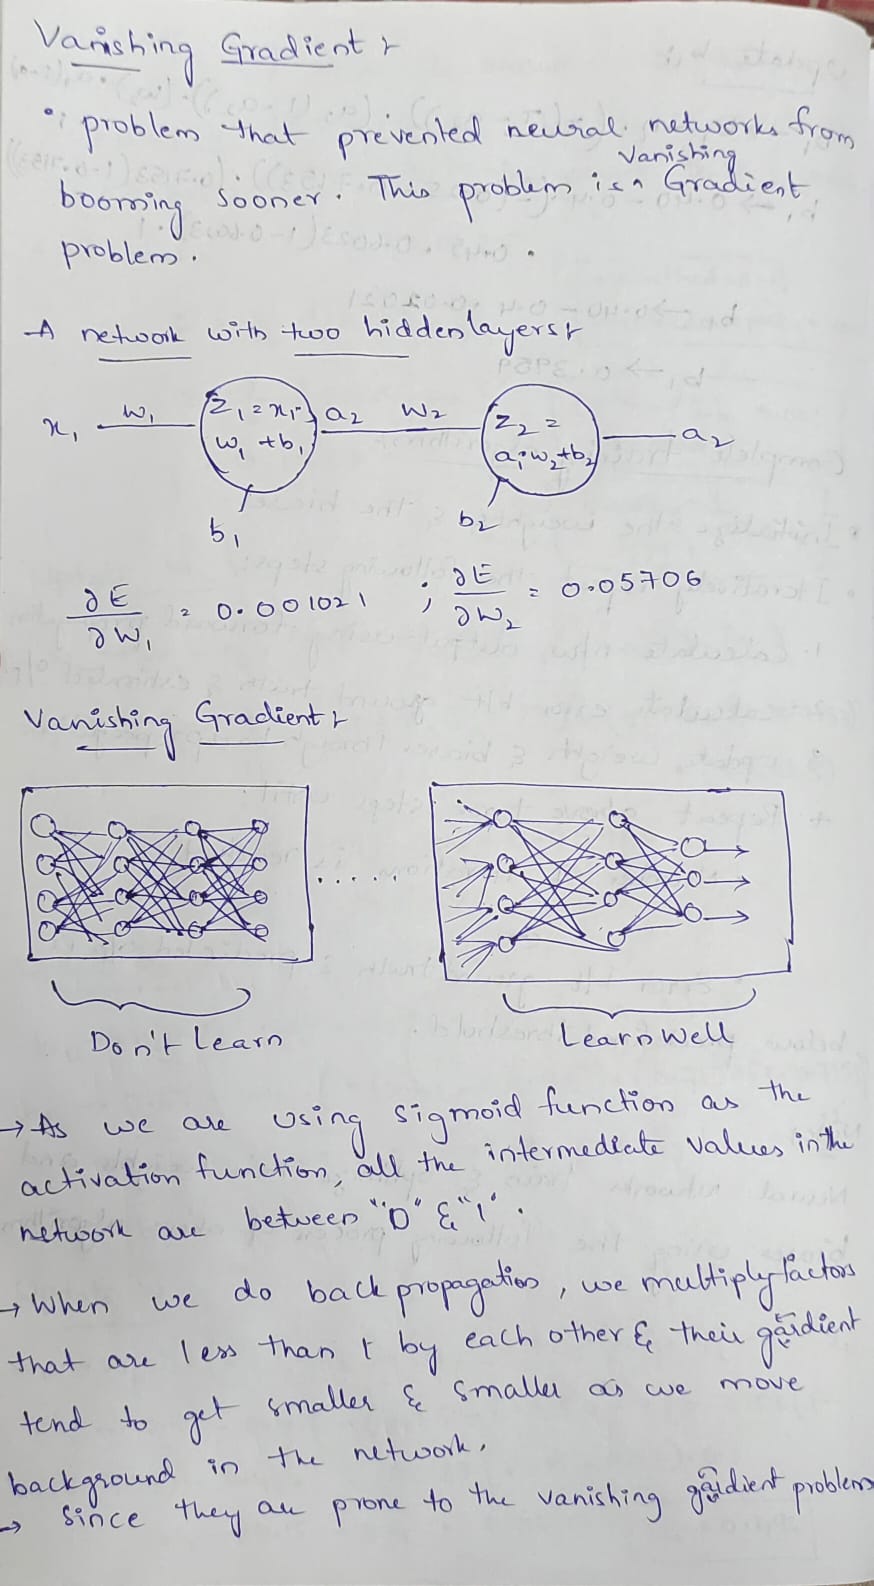 Vanishing Gradient :-
problem that prevented neural networks from
Vanishing
booming sooner. This problem is Gradient
problem.
A network with two hidden layers :-
x₁ w₁ z₁ = x₁· w₁ + b₁ a₂ w₂ z₂ = a₁·w₂+b₂ a₂
b₁ b₂
∂E/∂w₁ = 0.001021 ; ∂E/∂w₂ = 0.05706
Vanishing Gradient :-
.....
Don't Learn Learn well
→ As we are using sigmoid function as the
activation function, all the intermediate values in the
network are between "0" & "1".
→ When we do back propagation, we multiply factors
that are less than 1 by each other & their gardient
tend to get smaller & smaller as we move
background in the network.
→ Since they are prone to the vanishing gardient problem